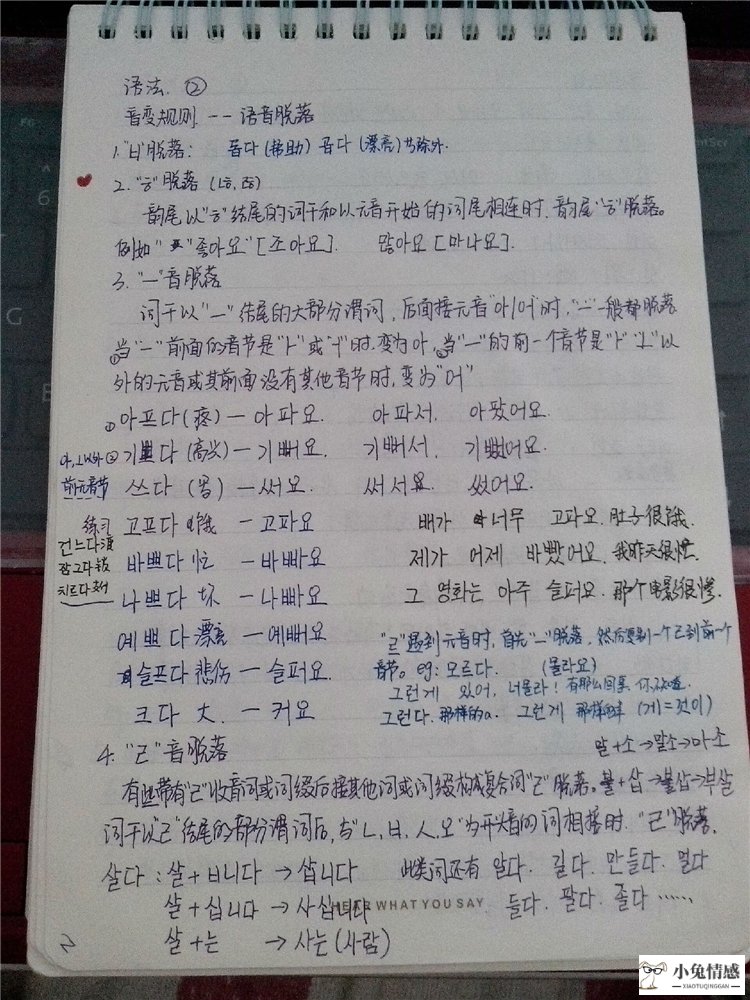 语法 ②
音变规则 -- 语音脱落
1."ㅂ"脱落: 돕다(帮助) 곱다(漂亮) 除外
2."ㅎ"脱落 (ㄶ, ㅀ)
韵尾以"ㅎ"结尾的词干和以元音开始的词尾相连时,韵尾"ㅎ"脱落。
例如"좋아요"[조아요]. 많아요[마나요].
3."ㅡ"音脱落
词干以"ㅡ"结尾的大部分谓词,后面接元音"아/어"时,"ㅡ"一般都脱落
①当"ㅡ"前面的音节是"ㅏ"或"ㅗ"时.变为아,②当"ㅡ"的前一个音节是"ㅏ""ㅗ"以
外的元音或其前面没有其他音节时,变为"어"
①아프다(疼) — 아파요. 아파서. 아팠어요.
아,ㅗ以外 ② 기쁘다(高兴) — 기뻐요. 기뻐서. 기뻤어요.
前无音节 쓰다 (写) — 써요. 써서요. 썼어요.
练习 고프다 饿 — 고파요 배가 너무 고파요. 肚子很饿.
건느다 渡
바쁘다 忙 — 바빠요 제가 어제 바빴어요. 我昨天很忙.
잠그다 锁
치르다
나쁘다 坏 — 나빠요 그 영화는 아주 슬퍼요. 那个电影很惨.
예쁘다 漂亮 — 예뻐요 "ㄹ"遇到元音时,首先"ㅡ"脱落,然后复制一个ㄹ到前一个
슬프다 悲伤 — 슬퍼요. 音节。eg: 모르다. (몰라요)
그런게 있어, 너몰라! 有那么回事
크다 大 — 커요 그런다. 那样的a. 그런게 那样的事 (게=것이)
4. "ㄹ"音脱落 말+소→말소→마소
有些带有"ㄹ"收音词或词缀后接其他词或词缀构成复合词"ㄹ"脱落。불+삽→불삽→부삽
词干以"ㄹ"结尾的部分谓词后,与"ㄴ,ㅂ,ㅅ,오"为开头音的词相接时."ㄹ"脱落.
살다: 살+ㅂ니다 → 삽니다 此类词还有 알다. 길다. 만들다. 멀다
살+십니다 → 사십니다 들다. 팔다. 졸다 ......
HEAR WHAT YOU SAY
살+는 → 사는(사람)
2
小兔情感
XIAOTUQINGGAN